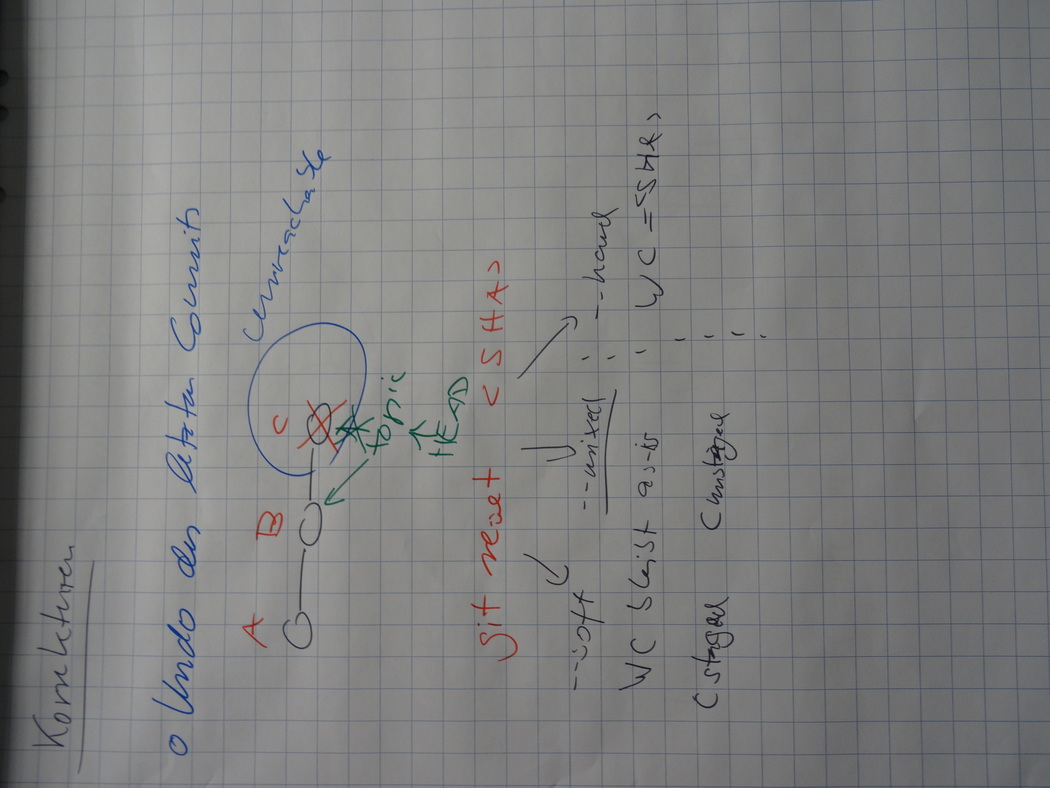 Korrekturen
o Undo des letzten Commits
A B C unreachable
topic
HEAD
git reset <SHA>
--soft --mixed --hard
WC bleibt as-is WC = <SHA>
C staged C unstaged